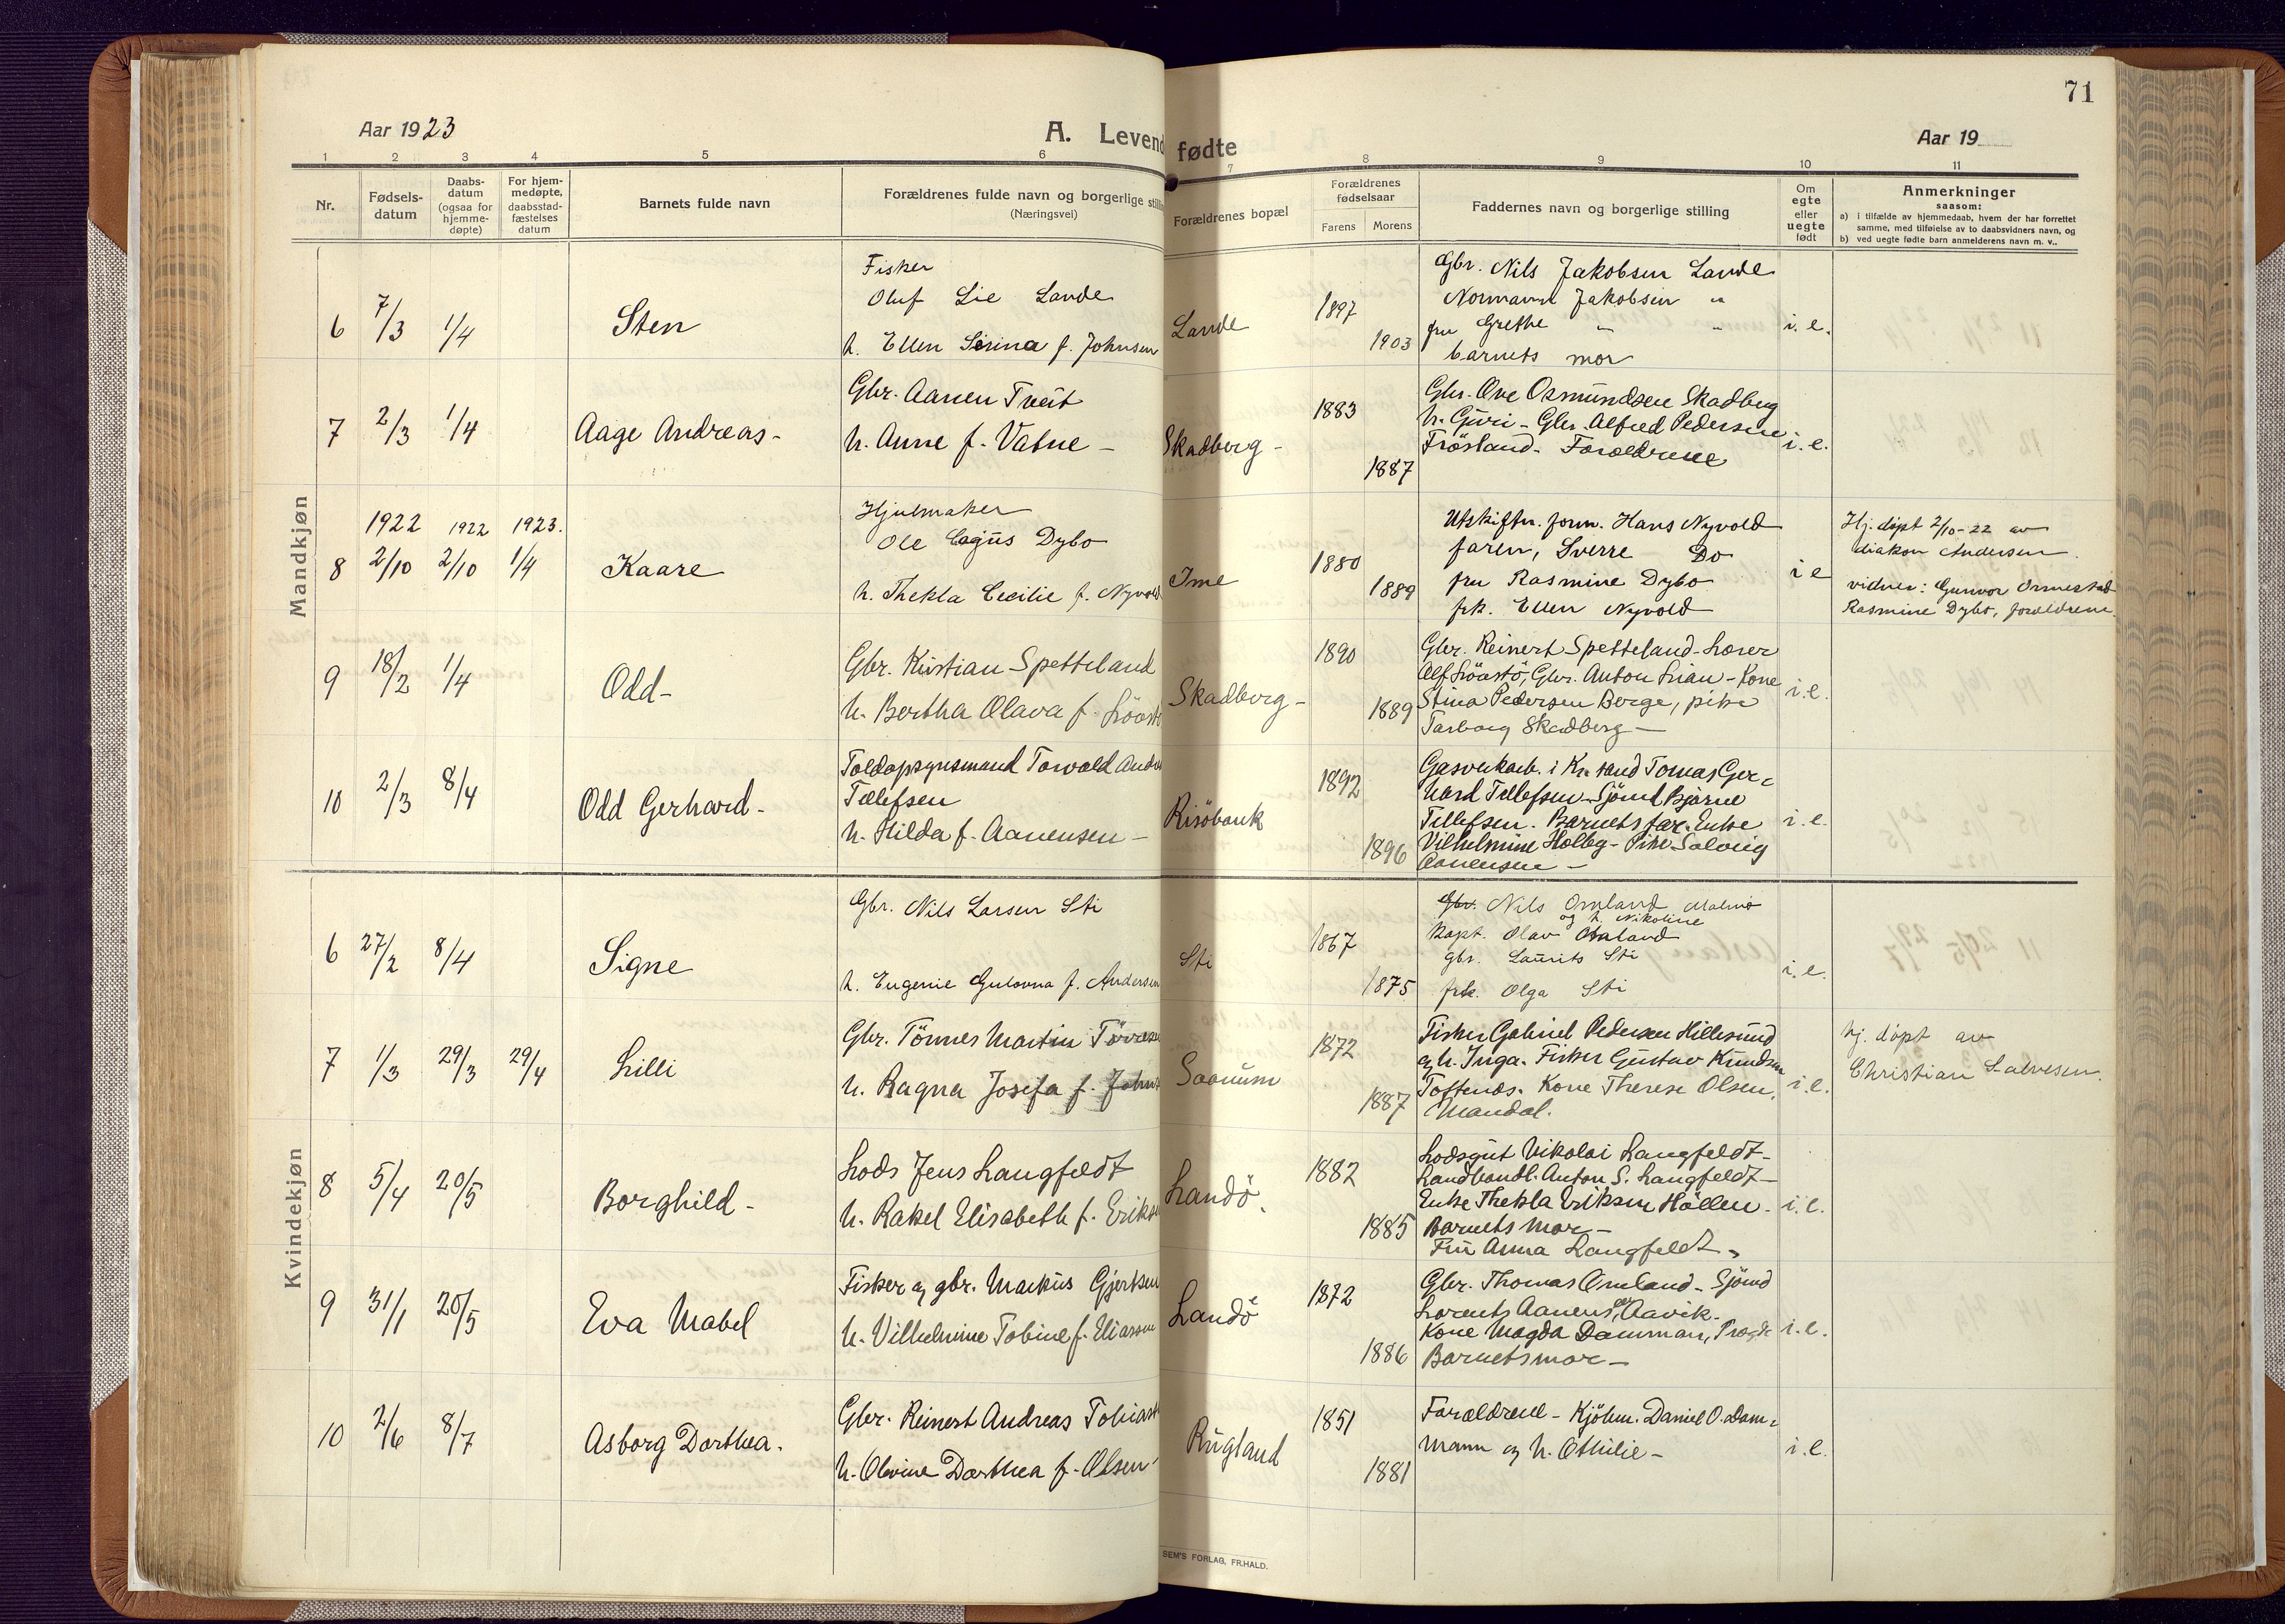 71
Aar 1923
A. Levend fødte
Aar 19
1 2 3 4 5 6 7 8 9 10 11
Nr.
Fødsels-
datum
Daabs-
datum
(ogsaa for
hjemme-
døpte)
For hjem-
medøpte,
daabsstad-
fæstelses
datum
Barnets fulde navn
Forældrenes fulde navn og borgerlige stilling
(Næringsvei)
Forældrenes bopæl
Forældrenes
fødselsaar
Farens Morens
Faddernes navn og borgerlige stilling
Om
egte
eller
uegte
født
Anmerkninger
saasom:
a) i tilfælde av hjemmedaab, hvem der har forrettet
samme, med tilføielse av to daabsvidners navn, og
b) ved uegte fødte barn anmelderens navn m. v..
Mandkjøn
6 7/3 1/4 Sten
Fisker
Oluf Lie Lande
h. Ellen Serina f. Johnsen
Lande
1897
1903
Gbr. Nils Jakobsen Lande
Normann Jakobsen "
fru Grethe " "
barnets mor
i. e.
7 2/3 1/4 Aage Andreas-
Gbr. Aanen Tveit
h. Anne f. Vatne -
Skadberg -
1883
1887
Gbr. Ove Osmundsen Skadberg
h. Guri - Gbr. Alfred Pedersen
Frösland. Forældrene
i. e.
1922 1922 1923.
8 2/10 2/10 1/4 Kaare
Hjulmaker
Ole Cajus Dybo
h. Thekla Cecilie f. Nyvold
Ime
1880
1889
Utskiftn. form. Hans Nyvold
faren, Sverre Do
fru Rasmine Dybo
frk. Ellen Nyvold
i e
Hj. døpt 2/10-22 av
diakon Andersen.
vidner: Gunvor Ormestad
Rasmine Dybo, forældrene.
9 18/2 1/4 Odd-
Gbr. Kristian Spetteland
h. Bertha Olava f. Löastö
Skadberg -
1890
1889
Gbr. Reinert Spetteland - Lærer
Alf Löastö, Gbr. Anton Lian - Kone
Stina Pedersen Berge, pike
Tarborg Skadberg -
i. e.
10 2/3 8/4 Odd Gerhard -
Toldopsynsmand Torvald Andr
Tellefsen
h. Hilda f. Aanensen -
Risöbank
1892
1896
Gasverkarb. i Kr.sand Tomas Ger-
hard Tellefsen - Sjömd Bjarne
Tellefsen. Barnets far. Enke
Vilhelmine Holby - Pike Solveig
Aanensen -
i. e.
Kvindekjøn
6 27/2 8/4 Signe
Gbr. Nils Larsen Sti
h. Eugenie Gulovna f. Andersen
Sti
1867
1875
Gbr. Nils Omland Malmö
og h. Nikoline
Kapt. Olav Omland
gbr. Laurits Sti
frk. Olga Sti
i. e.
7 1/3 29/3 29/4 Lilli
Gbr. Tönnes Martin Törresen
h. Ragna Josefa f. Johns
Saanum
1872
1887
Fisker Gabriel Pedersen Hillesund
og h. Inga. Fisker Gustav Knudsen
Toftenes. Kone Therese Olsen,
Mandal.
i. e.
hj. døpt av
Christian Salvesen.
8 5/4 20/5 Borghild -
Lods Jens Langfeldt
h. Rakel Elisabeth f. Eriks
Landö.
1882
1885
Lodsgut Nikolai Langfeldt -
Landhandl. Anton S. Langfeldt -
Enke Thekla Eriksen Höllen -
Barnets mor -
Fru Anna Langfeldt -
i. e.
9 31/1 20/5 Eva Mabel
Fisker og gbr. Markus Gjertsen
h. Vilhelmine Tobine f. Eliassen
Landö
1872
1886
Gbr. Thomas Omland - Sjömd
Lorents Aanensen, Aavik -
Kone Magda Damman, Tregde
Barnets mor -
i. e.
10 2/6 8/7 Asborg Dorthea.
Gbr. Reinert Andreas Tobias
h. Olovine Dorthea f. Olsen
Rugland
1851
1881
Forældrene - Kjöbm. Daniel O. Dam-
mann og h. Othilie -
i. e.
SEM'S FORLAG, FR.HALD.